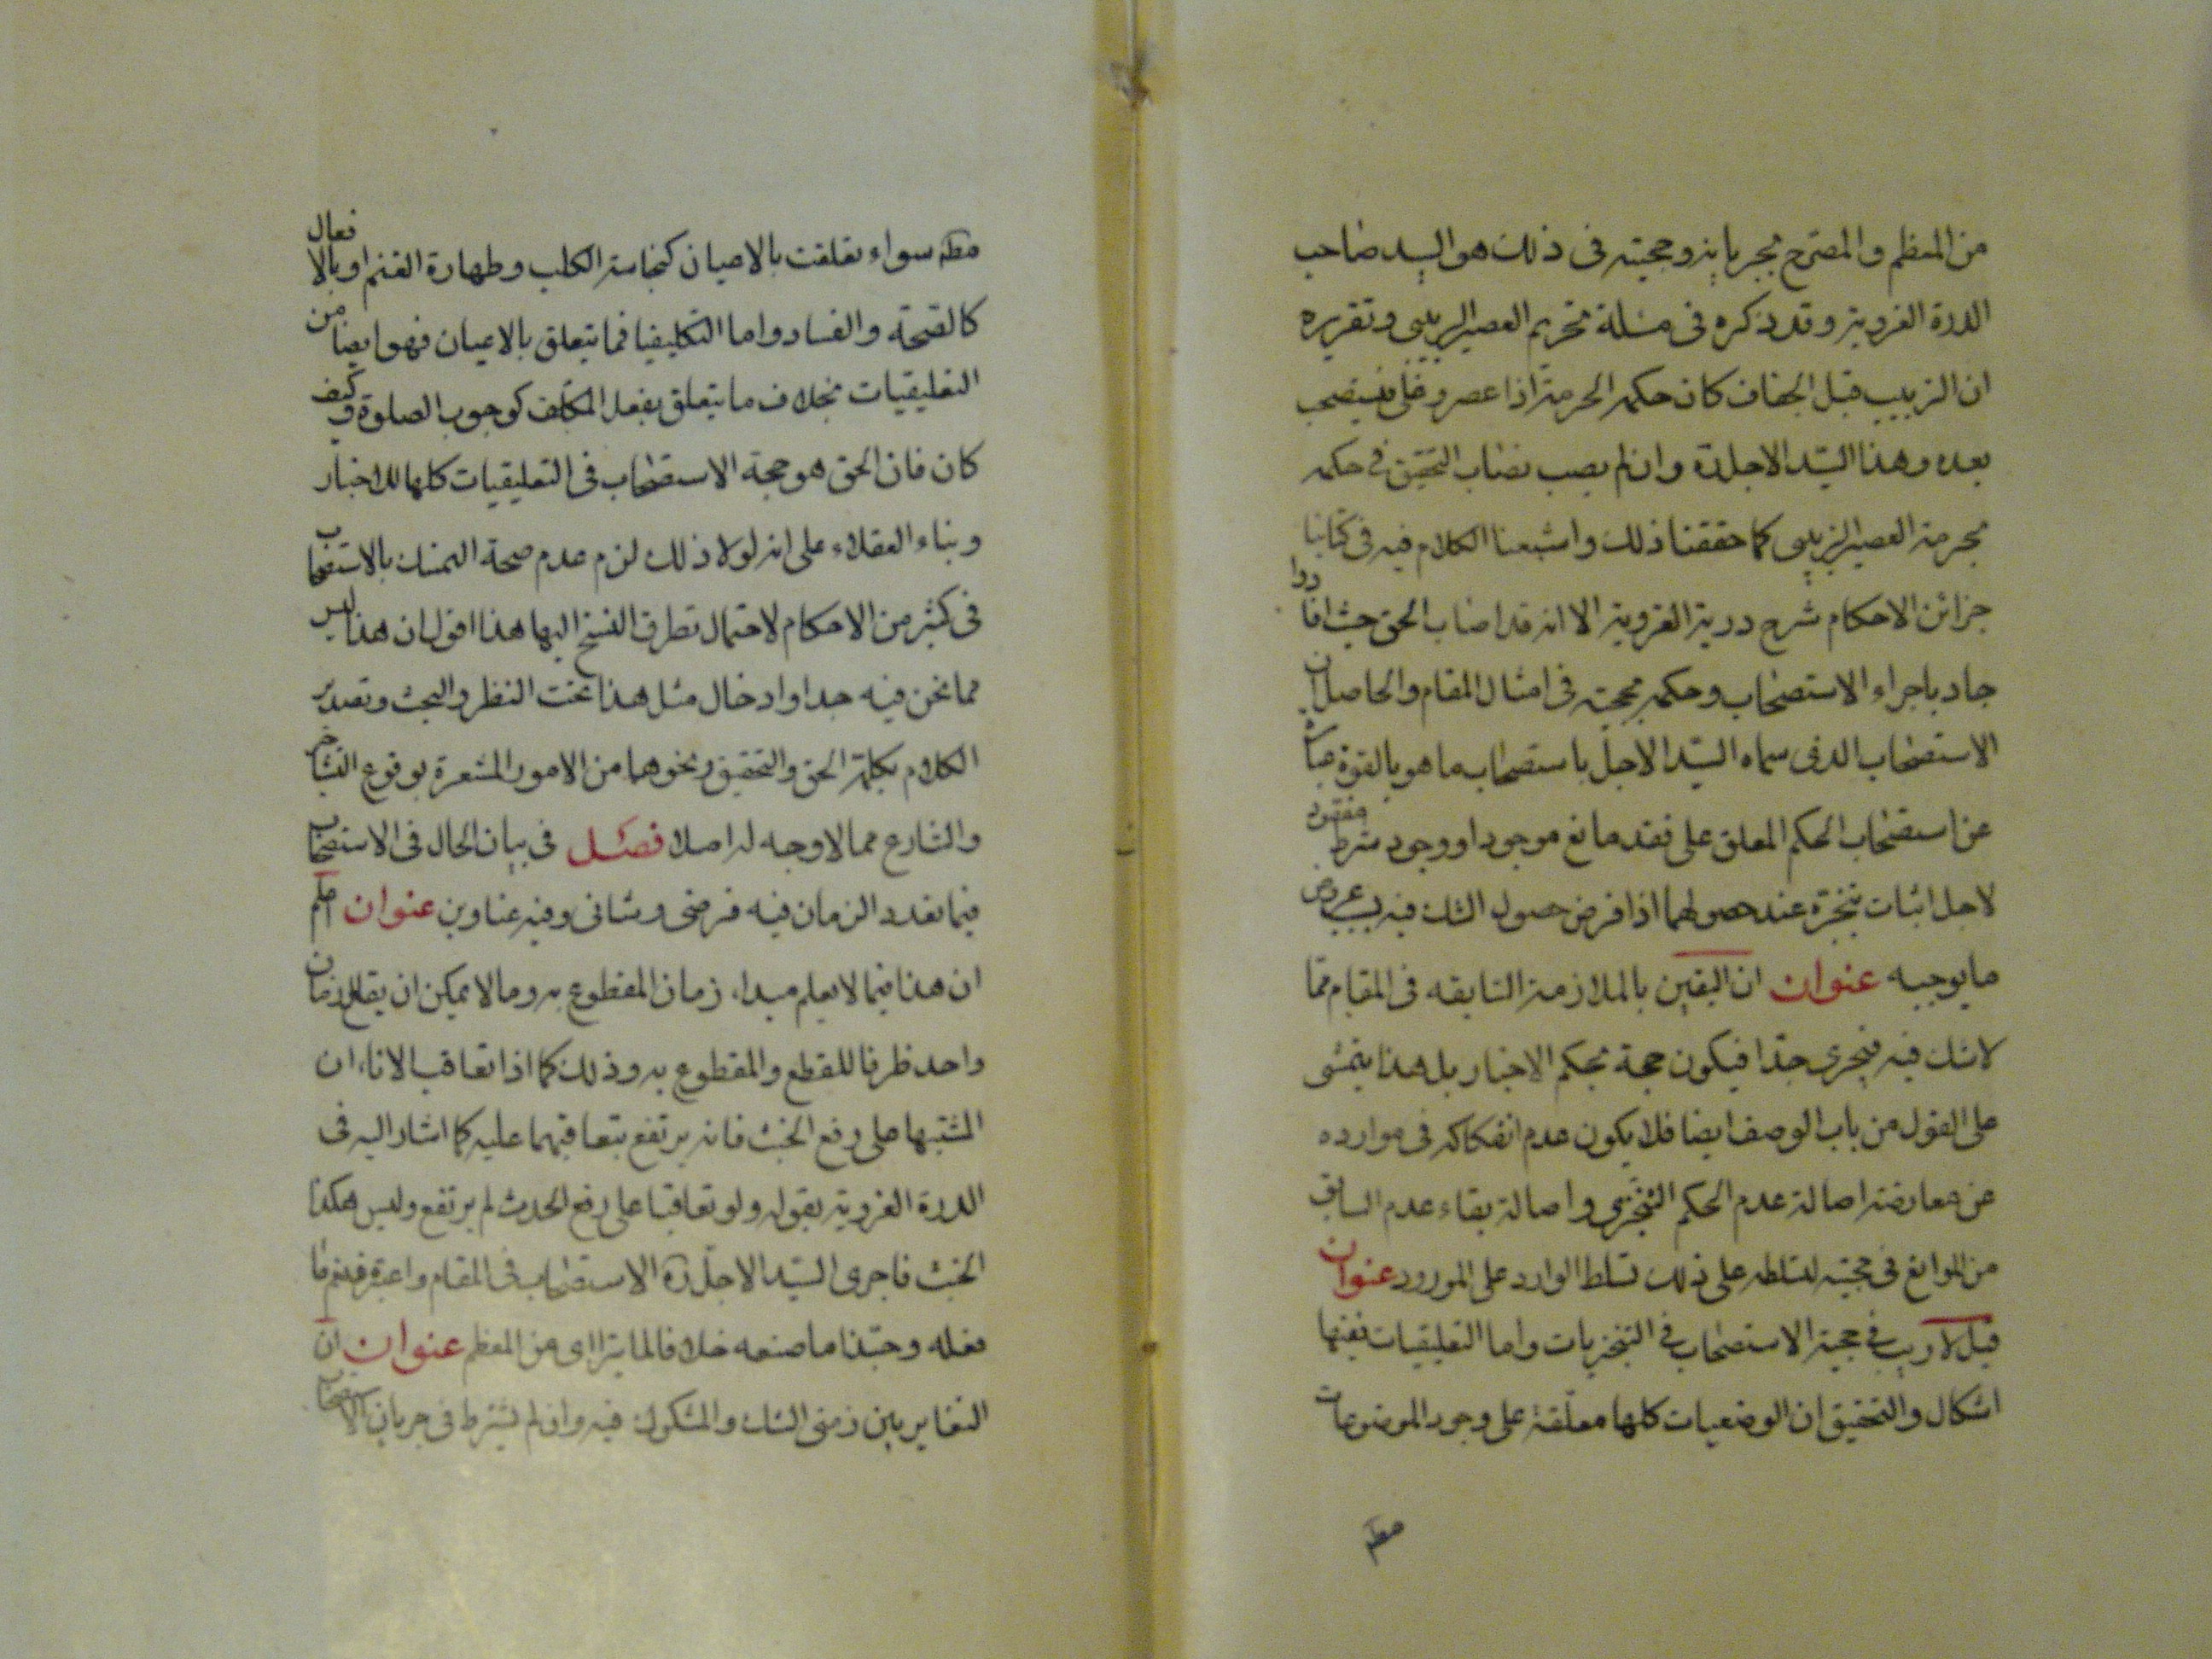 من المعظم والمصرح بجريانه وحجيته فى ذلك هو السيد صاحب
الدرة الغروية وقد ذكره فى مسئلة تحريم العصير الزبيبى وتقريره
ان الزبيب قبل الجفاف كان حكمه الحرمة اذا عصر وغلى فيستصحب
بعده وهذا السيد الاجل ره وان لم يصب نصاب التحقيق فى حكمه
بحرمة العصير الزبيبى كما حققنا ذلك واشبعنا الكلام فيه فى كتابنا
خزائن الاحكام شرح درية الغروية الا انه قد اصاب الحق حيث افاد وا
جاد باجراء الاستصحاب وحكمه بحجيته فى امثال المقام والحاصل ان
الاستصحاب الذى سماه السيد الاجل باستصحاب ما هو بالقوة عبارة
عن استصحاب الحكم المعلق على فقد مانع موجود او وجود شرط مفقود
لاجل اثبات تنجزه عند حصولهما اذا فرض حصول الشك فيه بسبب عروض
ما يوجبه عنوان ان اليقين بالملازمة السابقه فى المقام مما
لا شك فيه فيجرى جدا فيكون حجة بحكم الاخبار بل هذا يتمشى
على القول من باب الوصف ايضا فلا يكون عدم انفكاكه فى موارده
عن معارضة اصالة عدم الحكم التنجيزى واصالة بقاء عدم السابق
من الموانع فى حجيته لتسلطه على ذلك تسلط الوارد على المورود عنوان
قيل لا ريب فى حجية الاستصحاب فى التنجيزيات واما التعليقيات ففيها
اشكال والتحقيق ان الوضعيات كلها معلقة على وجود الموضوعات
مطه
مطه سواء تعلقت بالاعيان كنجاسة الكلب وطهارة الغنم او بالافعال
كالصحة والفساد واما التكليفيا فما يتعلق بالاعيان فهو ايضا من
التعليقيات بخلاف ما يتعلق بفعل المكلف كوجوب الصلوة وكيف
كان فان الحق هو حجة الاستصحاب فى التعليقيات كلها للاخبار
وبناء العقلاء على انه لولا ذلك لزم عدم صحة التمسك بالاستصحاب
فى كثير من الاحكام لاحتمال تطرق النسخ اليها هذا اقول ان هذا ليس
مما نحن فيه جدا وادخال مثل هذا تحت النظر والبحث وتصدير
الكلام بكلمة الحق والتحقيق ونحوهما من الامور المشعرة بوقوع التشاجر
والتنازع مما لا وجه له اصلا فصل فى بيان الحال فى الاستصحاب
فيما تعدد الزمان فيه فرضى وشانى وفيه عناوين عنوان اعلم
ان هذا فيما لا يعلم مبداء زمان المقطوع به وما لا يمكن ان يقع زمان
واحد ظرفا للقطع والمقطوع به وذلك كما اذا تعاقب الاناءان
المشتبها على رفع الخبث فانه يرتفع بتعاقبهما عليه كما اشار اليه فى
الدرة الغروية بقوله ولو تعاقبا على رفع الحدث لم يرتفع وليس هكذا
الخبث فاجرى السيد الاجل ره الاستصحاب فى المقام واعتبره فنعم ما
فعله وحبذا ما صنعه خلافا لما يتراءى من المعظم عنوان ان
التغاير بين زمنى الشك والمشكوك فيه وان لم يشترط فى جريان الاستصحاب